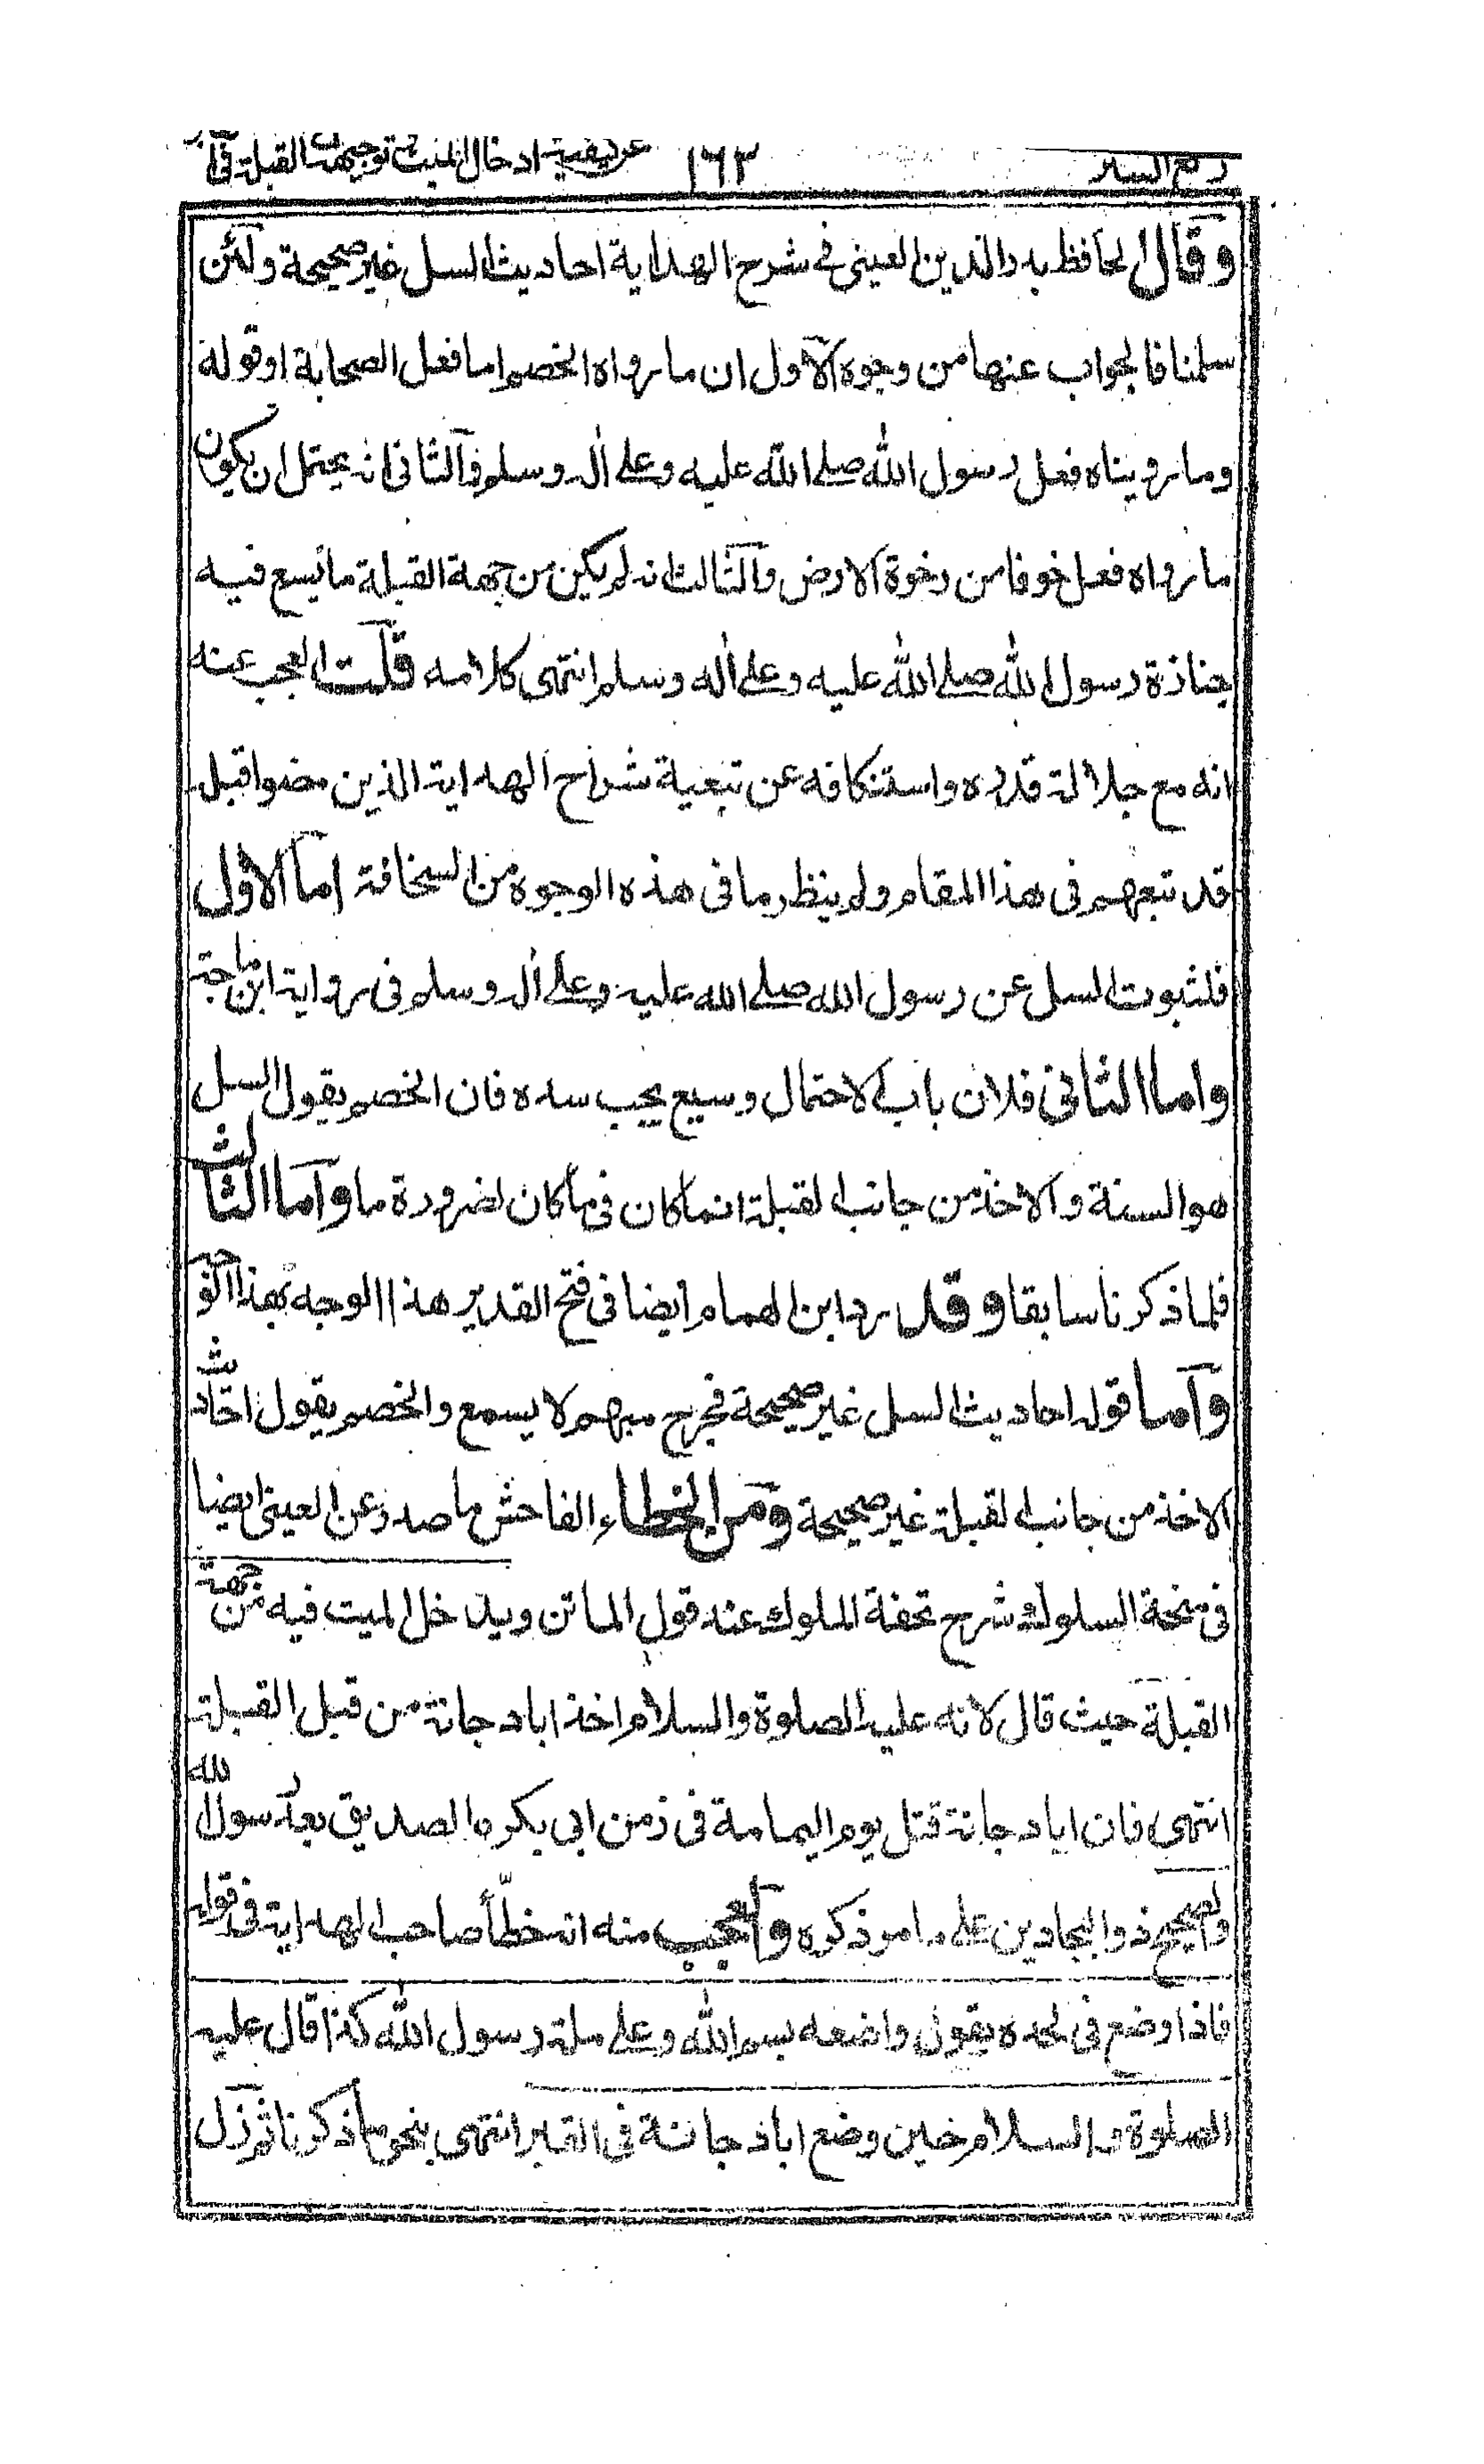 رفع الستر ١٦٣ عن كيفية ادخال الميت وتوجيهه الى القبلة فى
وقال الحافظ بدر الدين العينى فى شرح الهداية احاديث السل غير صحيحة ولئن
سلمنا فالجواب عنها من وجوه الاول ان ما رواه الخصم اما فعل الصحابة او قوله
وما رويناه فعل رسول الله صلى الله عليه وعلى اله وسلم والثانى انه يحتمل ان يكون
ما رواه فعل خوفا من رخوة الارض والثالث انه لم يكن من جهة القبلة ما يسع فيه
جنازة رسول الله صلى الله عليه وعلى اله وسلم انتهى كلامه قلت العجب عنه
انه مع جلالة قدره واستنكافه عن تبعية شراح الهداية الذين مضوا قبل
قد تبعهم فى هذا المقام ولم ينظر ما فى هذه الوجوه من السخافة اما الاول
فلثبوت السل عن رسول الله صلى الله عليه وعلى اله وسلم فى رواية ابن ماجة
واما الثانى فلان باب الاحتمال وسيع يجب سده فان الخصم يقول السل
هو السنة والاخذ من جانب القبلة انما كان فى ما كان لضرورة ما واما الثالث
فلما ذكرنا سابقا وقد رد ابن الهمام ايضا فى فتح القدير هذا الوجه بهذا الوجه
واما قوله احاديث السل غير صحيحة فجرح مبهم لا يسمع والخصم يقول احاديث
الاخذ من جانب القبلة غير صحيحة ومن الخطاء الفاحش ما صدر عن العينى ايضا
فى منحة السلوك شرح تحفة الملوك عند قول الماتن ويدخل الميت فيه من جهة
القبلة حيث قال لانه عليه الصلوة والسلام اخذ ابا دجانة من قبل القبلة
انتهى فان ابا دجانة قتل يوم اليمامة فى زمن ابى بكر الصديق بعد رسول الله
والصحيح ذو البجادين على ما مر ذكره والعجب منه انه خطأ صاحب الهداية فى قوله
فاذا وضع فى لحده يقول واضعه بسم الله وعلى ملة رسول الله كذا قال عليه
الصلوة والسلام حين وضع ابا دجانة فى القبر انتهى بنحو ما ذكرنا ثم زل